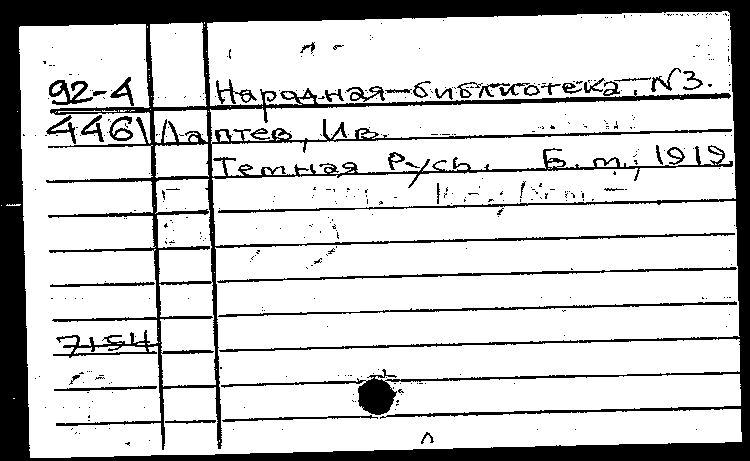 92-4 Народная библиотека, N3.
4461 Лаптев, Ив.
Темная Русь. Б. т., 1919.
7154